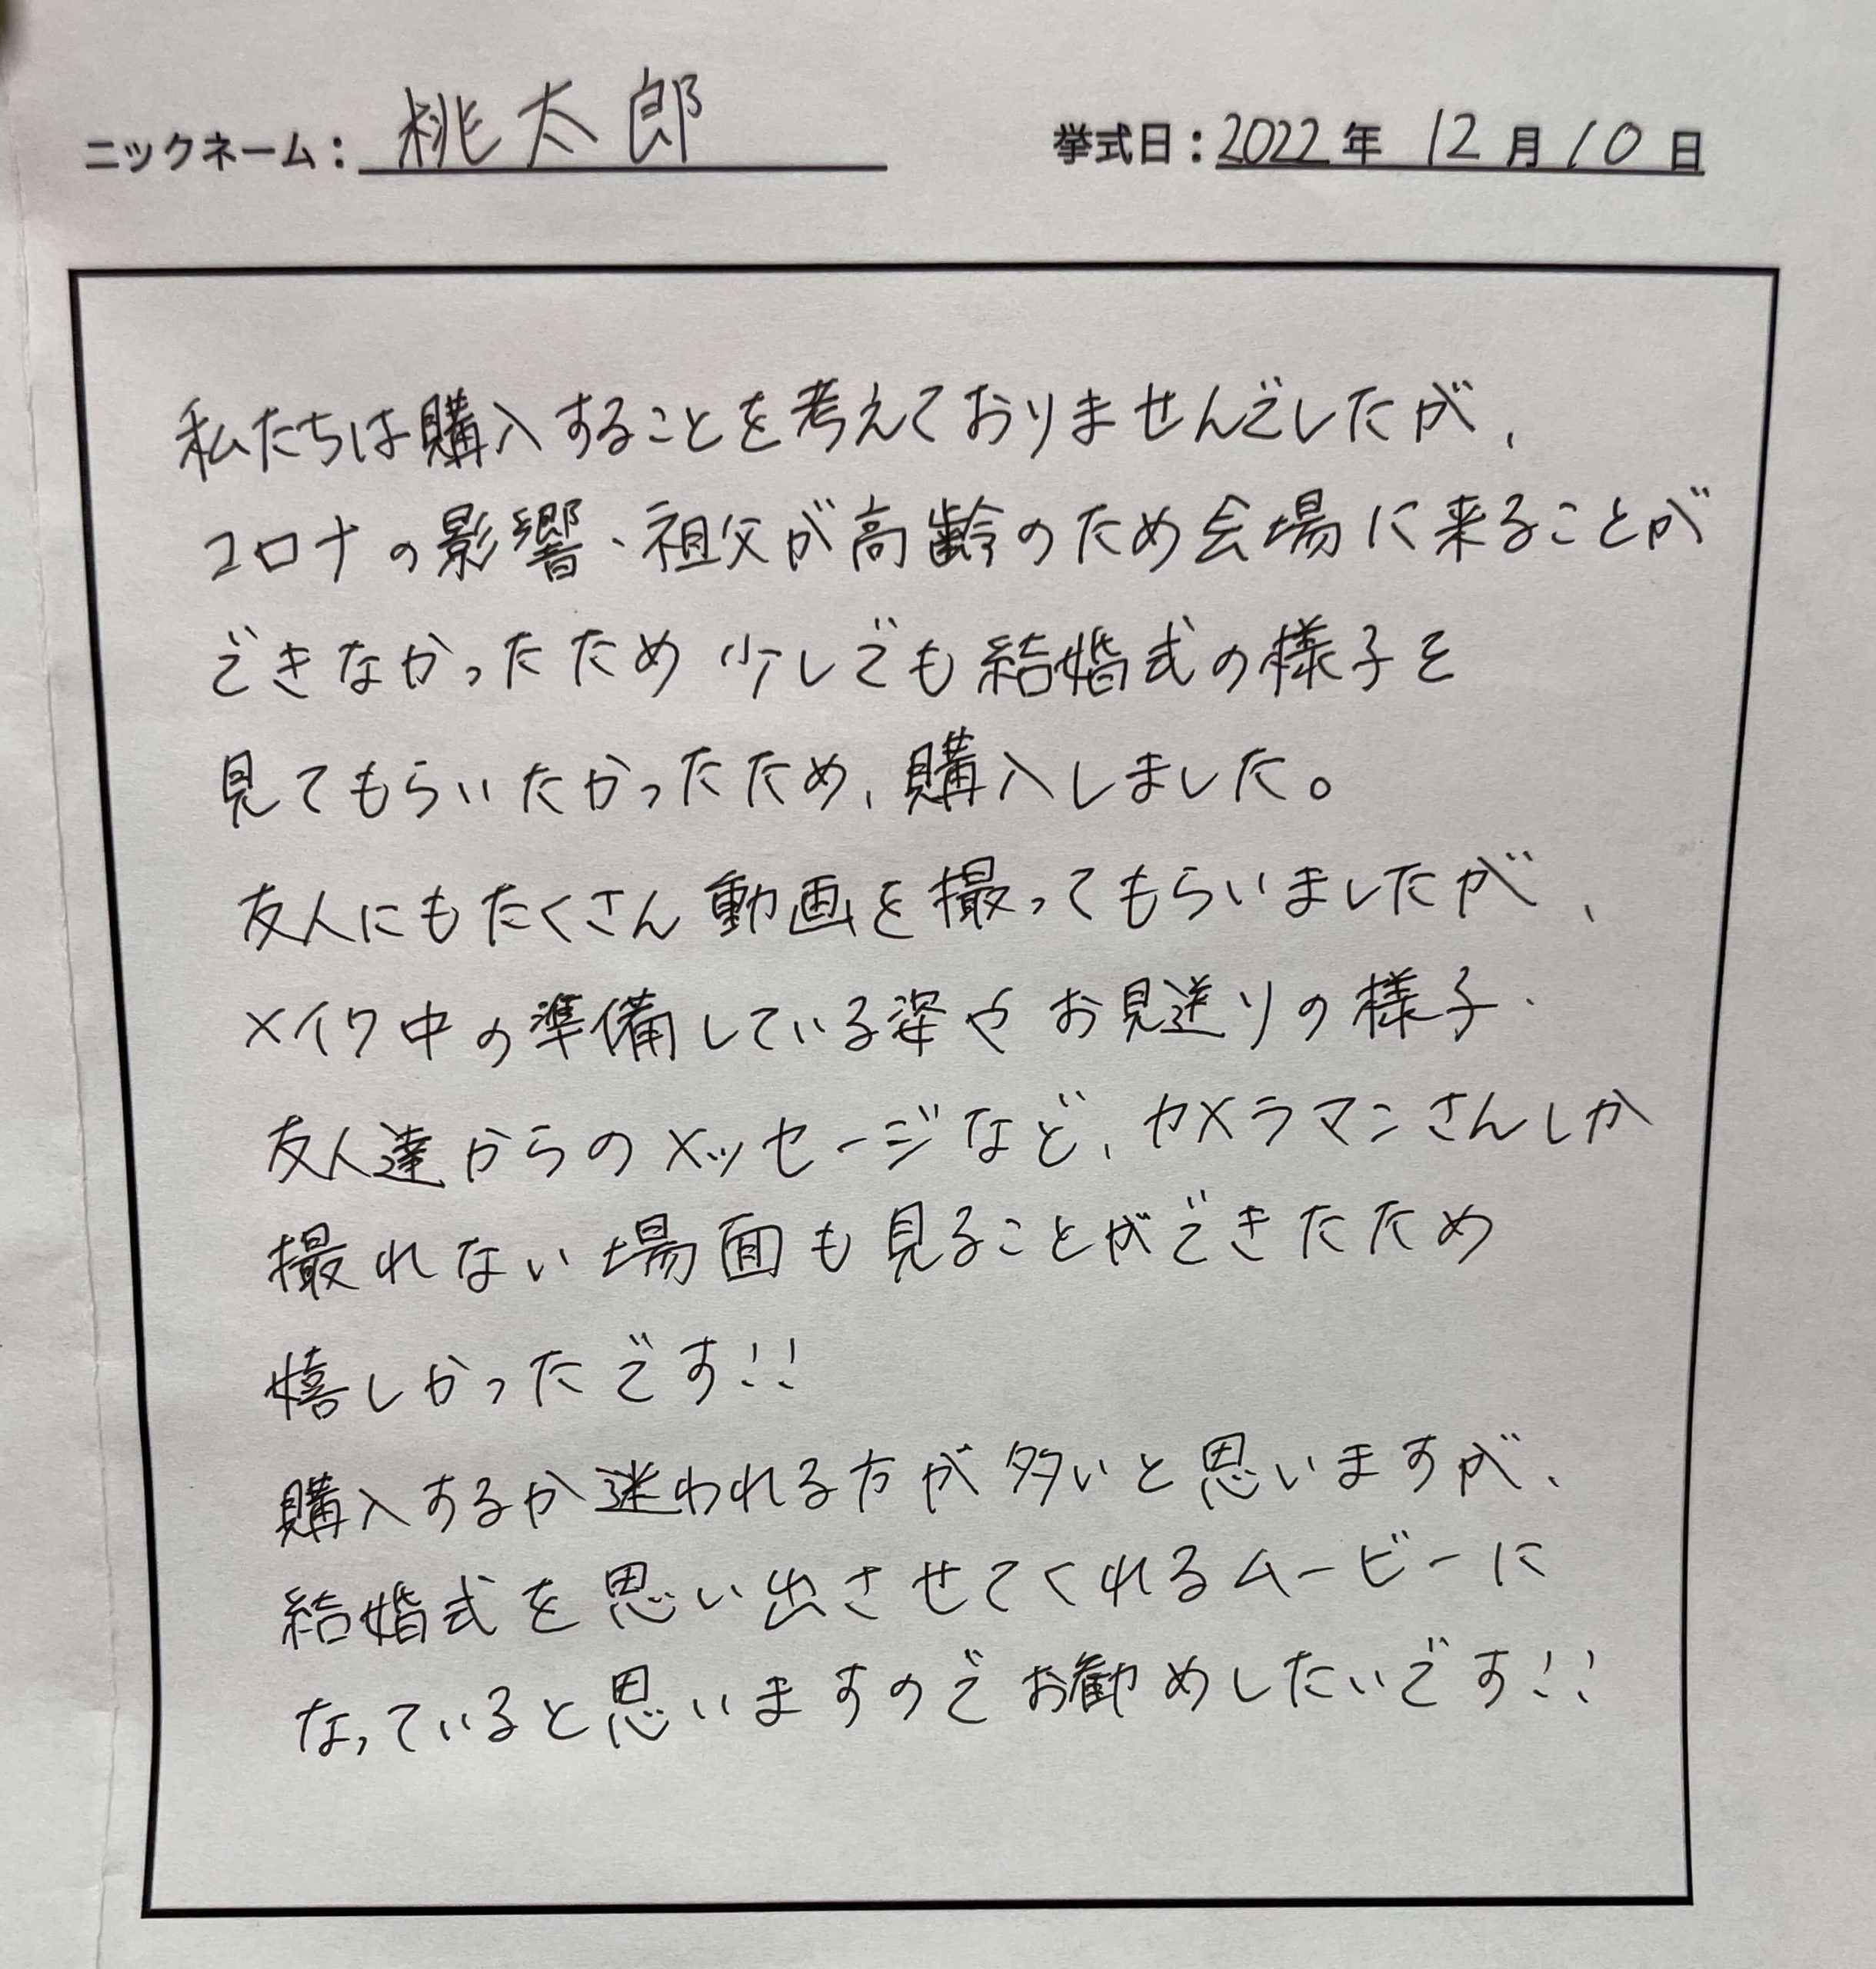 ニックネーム：桃太郎　挙式日：2022年12月10日
私たちは購入することを考えておりませんでしたが、
コロナの影響、祖父が高齢のため会場に来ることが
できなかったため少しでも結婚式の様子を
見てもらいたかったため、購入しました。
友人にもたくさん動画を撮ってもらいましたが、
メイク中の準備している姿やお見送りの様子・
友人達からのメッセージなど、カメラマンさんしか
撮れない場面も見ることができたため
嬉しかったです!!
購入するか迷われる方が多いと思いますが、
結婚式を思い出させてくれるムービーに
なっていると思いますのでお勧めしたいです!!